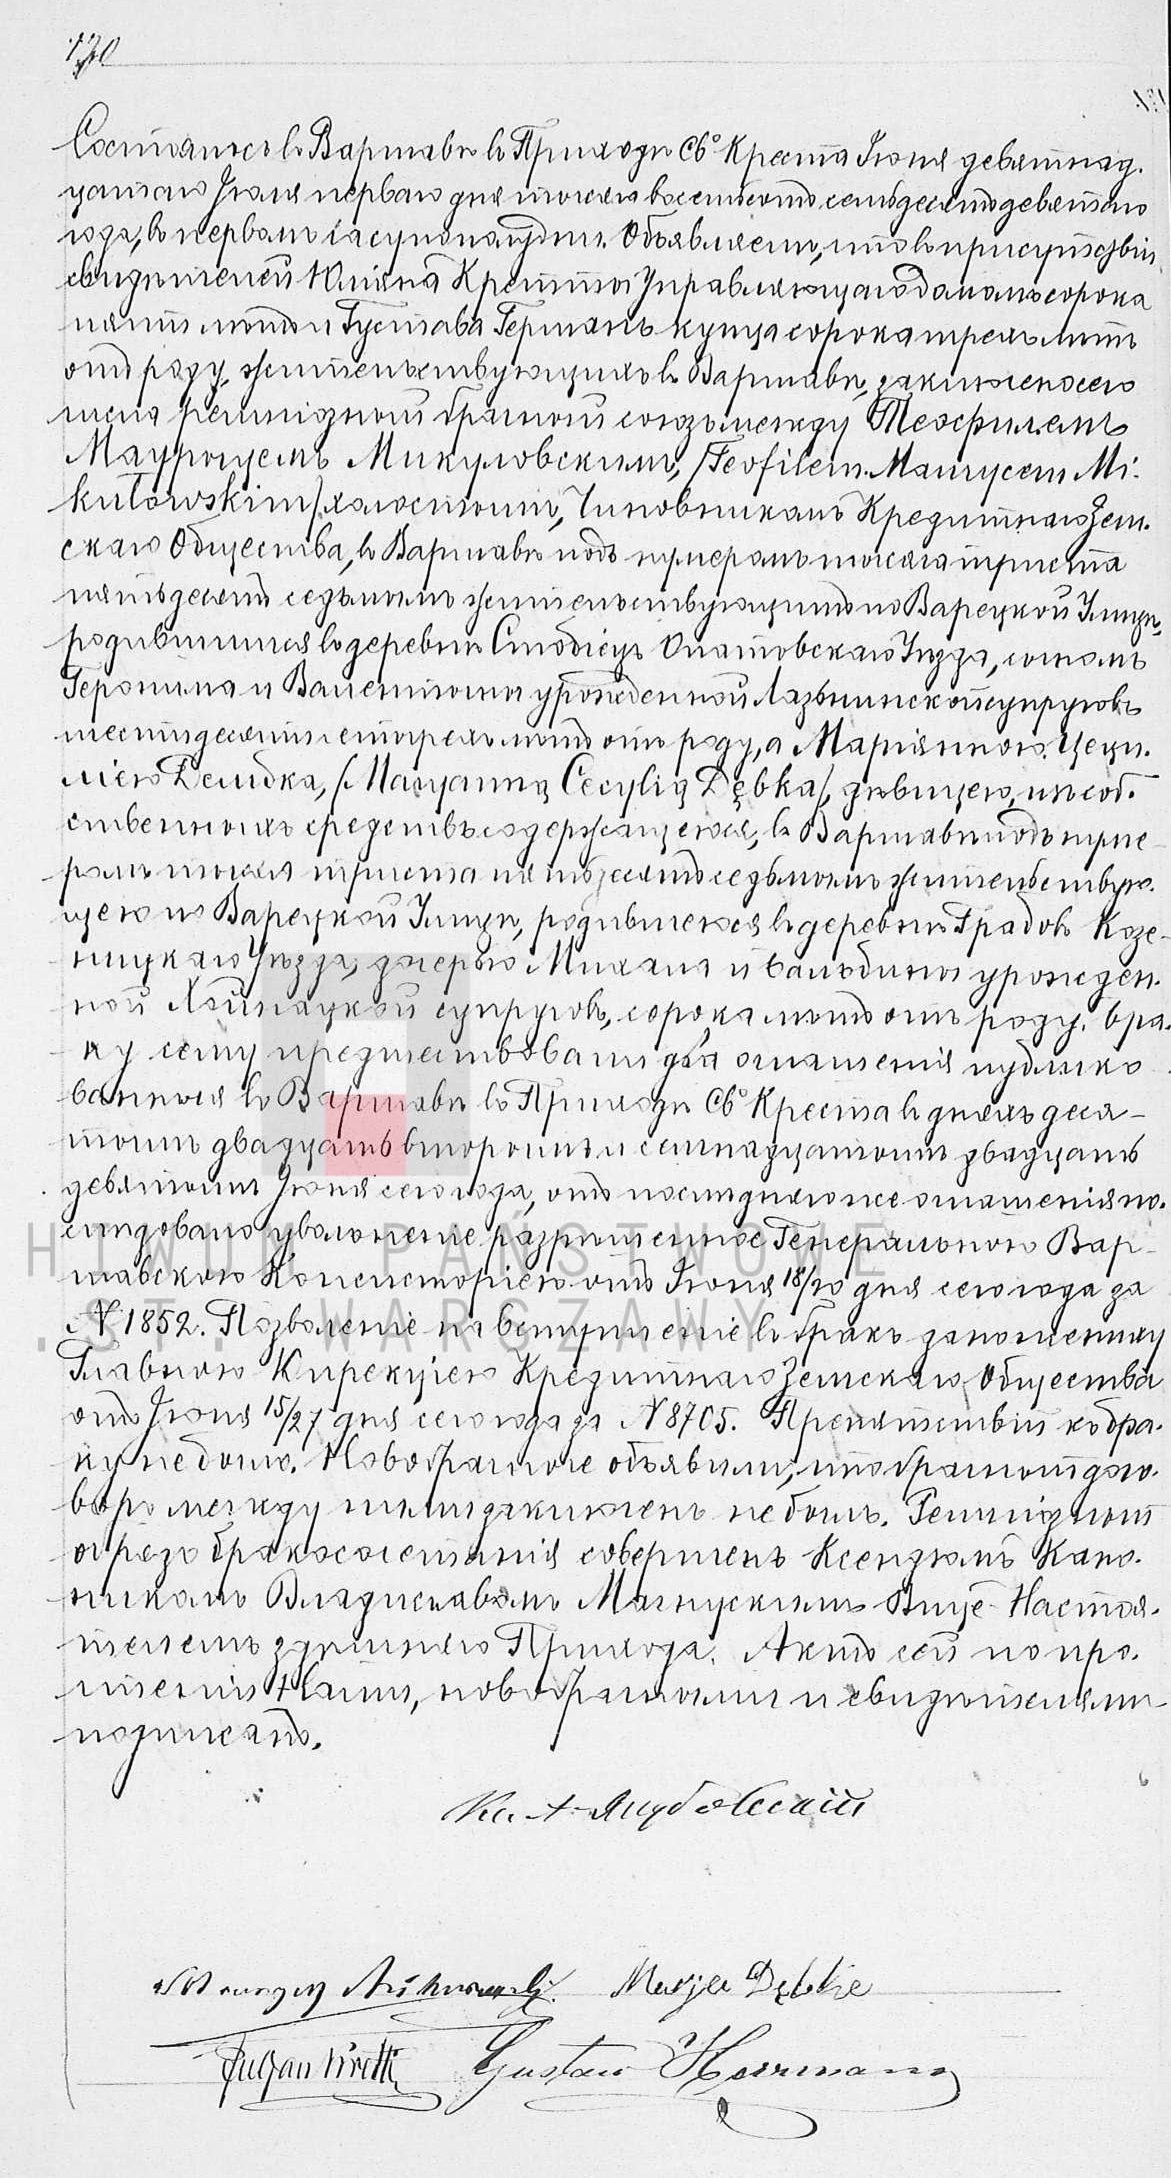 170
Состоялось въ Варшавѣ въ Приходѣ Св. Креста Іюня девятнад.
цатаго Іюля перваго дня тысяча восемьсотъ семьдесятъ девятаго
года, въ первомъ часу пополудни. Объявляемъ, что въ присутствіи
свидѣтелей Юліяна Управляющаго домомъ сорока
пяти лѣтъ и Густава Германъ купца сорока трехъ лѣтъ
отъ роду, жительствующихъ въ Варшавѣ, заключенъ сего
числа религіозный брачный союзъ между Теофилемъ
Маурыцемъ Микуловскимъ, /Teofilem Maurycem Mi.
kułowskim/ холостымъ, Чиновникомъ Кредитнаго Зем.
скаго Общества, въ Варшавѣ подъ нумеромъ тысяча триста
пятьдесятъ седьмымъ жительствующимъ по Варецкой Улицѣ,
родившимся въ деревнѣ Опатовскаго Уѣзда, сыномъ
Геронима и урожденной супруговъ
шестидесяти лѣтъ отъ роду, а Маріянною Цеци.
ліею Дембка, /Maryanną Cecylią Dębka/, дѣвицею, изъ соб.
ственныхъ средствъ содержащеюся, въ Варшавѣ подъ нуме
ромъ тысяча триста пятьдесятъ седьмымъ жительствую.
щею по Варецкой Улицѣ, родившеюся въ деревнѣ Градовъ Козе-
ницкаго Уѣзда, дочерью Михала и Бальбины урожден.
ной супруговъ, сорока лѣтъ отъ роду. Бра.
ку сему предшествовали два оглашенія публико
ванныя въ Варшавѣ въ Приходѣ Св. Креста въ дняхъ деся-
томъ двадцать второмъ и семнадцатомъ двадцать
девятомъ Іюня сего года, отъ послѣдняго же оглашенія по.
слѣдовало увольненіе разрѣшенное Генеральною Вар-
шавскою Консисторіею отъ Іюня 18/30 дня сего года за
N 1852. Позволеніе на вступленіе въ бракъ
Главною Дирекціею Кредитнаго Земскаго Общества
отъ Іюня 15/27 дня сего года за N 8705. Препятствій къ бра.
ку не было. Новобрачные объявили, что брачный дого.
воръ между ними заключенъ не былъ. Религіозный
обрядъ бракосочетанія совершенъ Ксендзомъ Кано.
никомъ Владиславомъ Вице-Настоя.
телемъ здѣшняго Прихода. Актъ сей по про.
чтеніи Нами, новобрачными и свидѣтелями
подписанъ.
Кс. А. Якубовскій
Maurycy Mikułowski Marja Dębka
Juljan Gustaw Herrmann
HIWUM PAŃSTWOWE
.ST. WARSZAWY